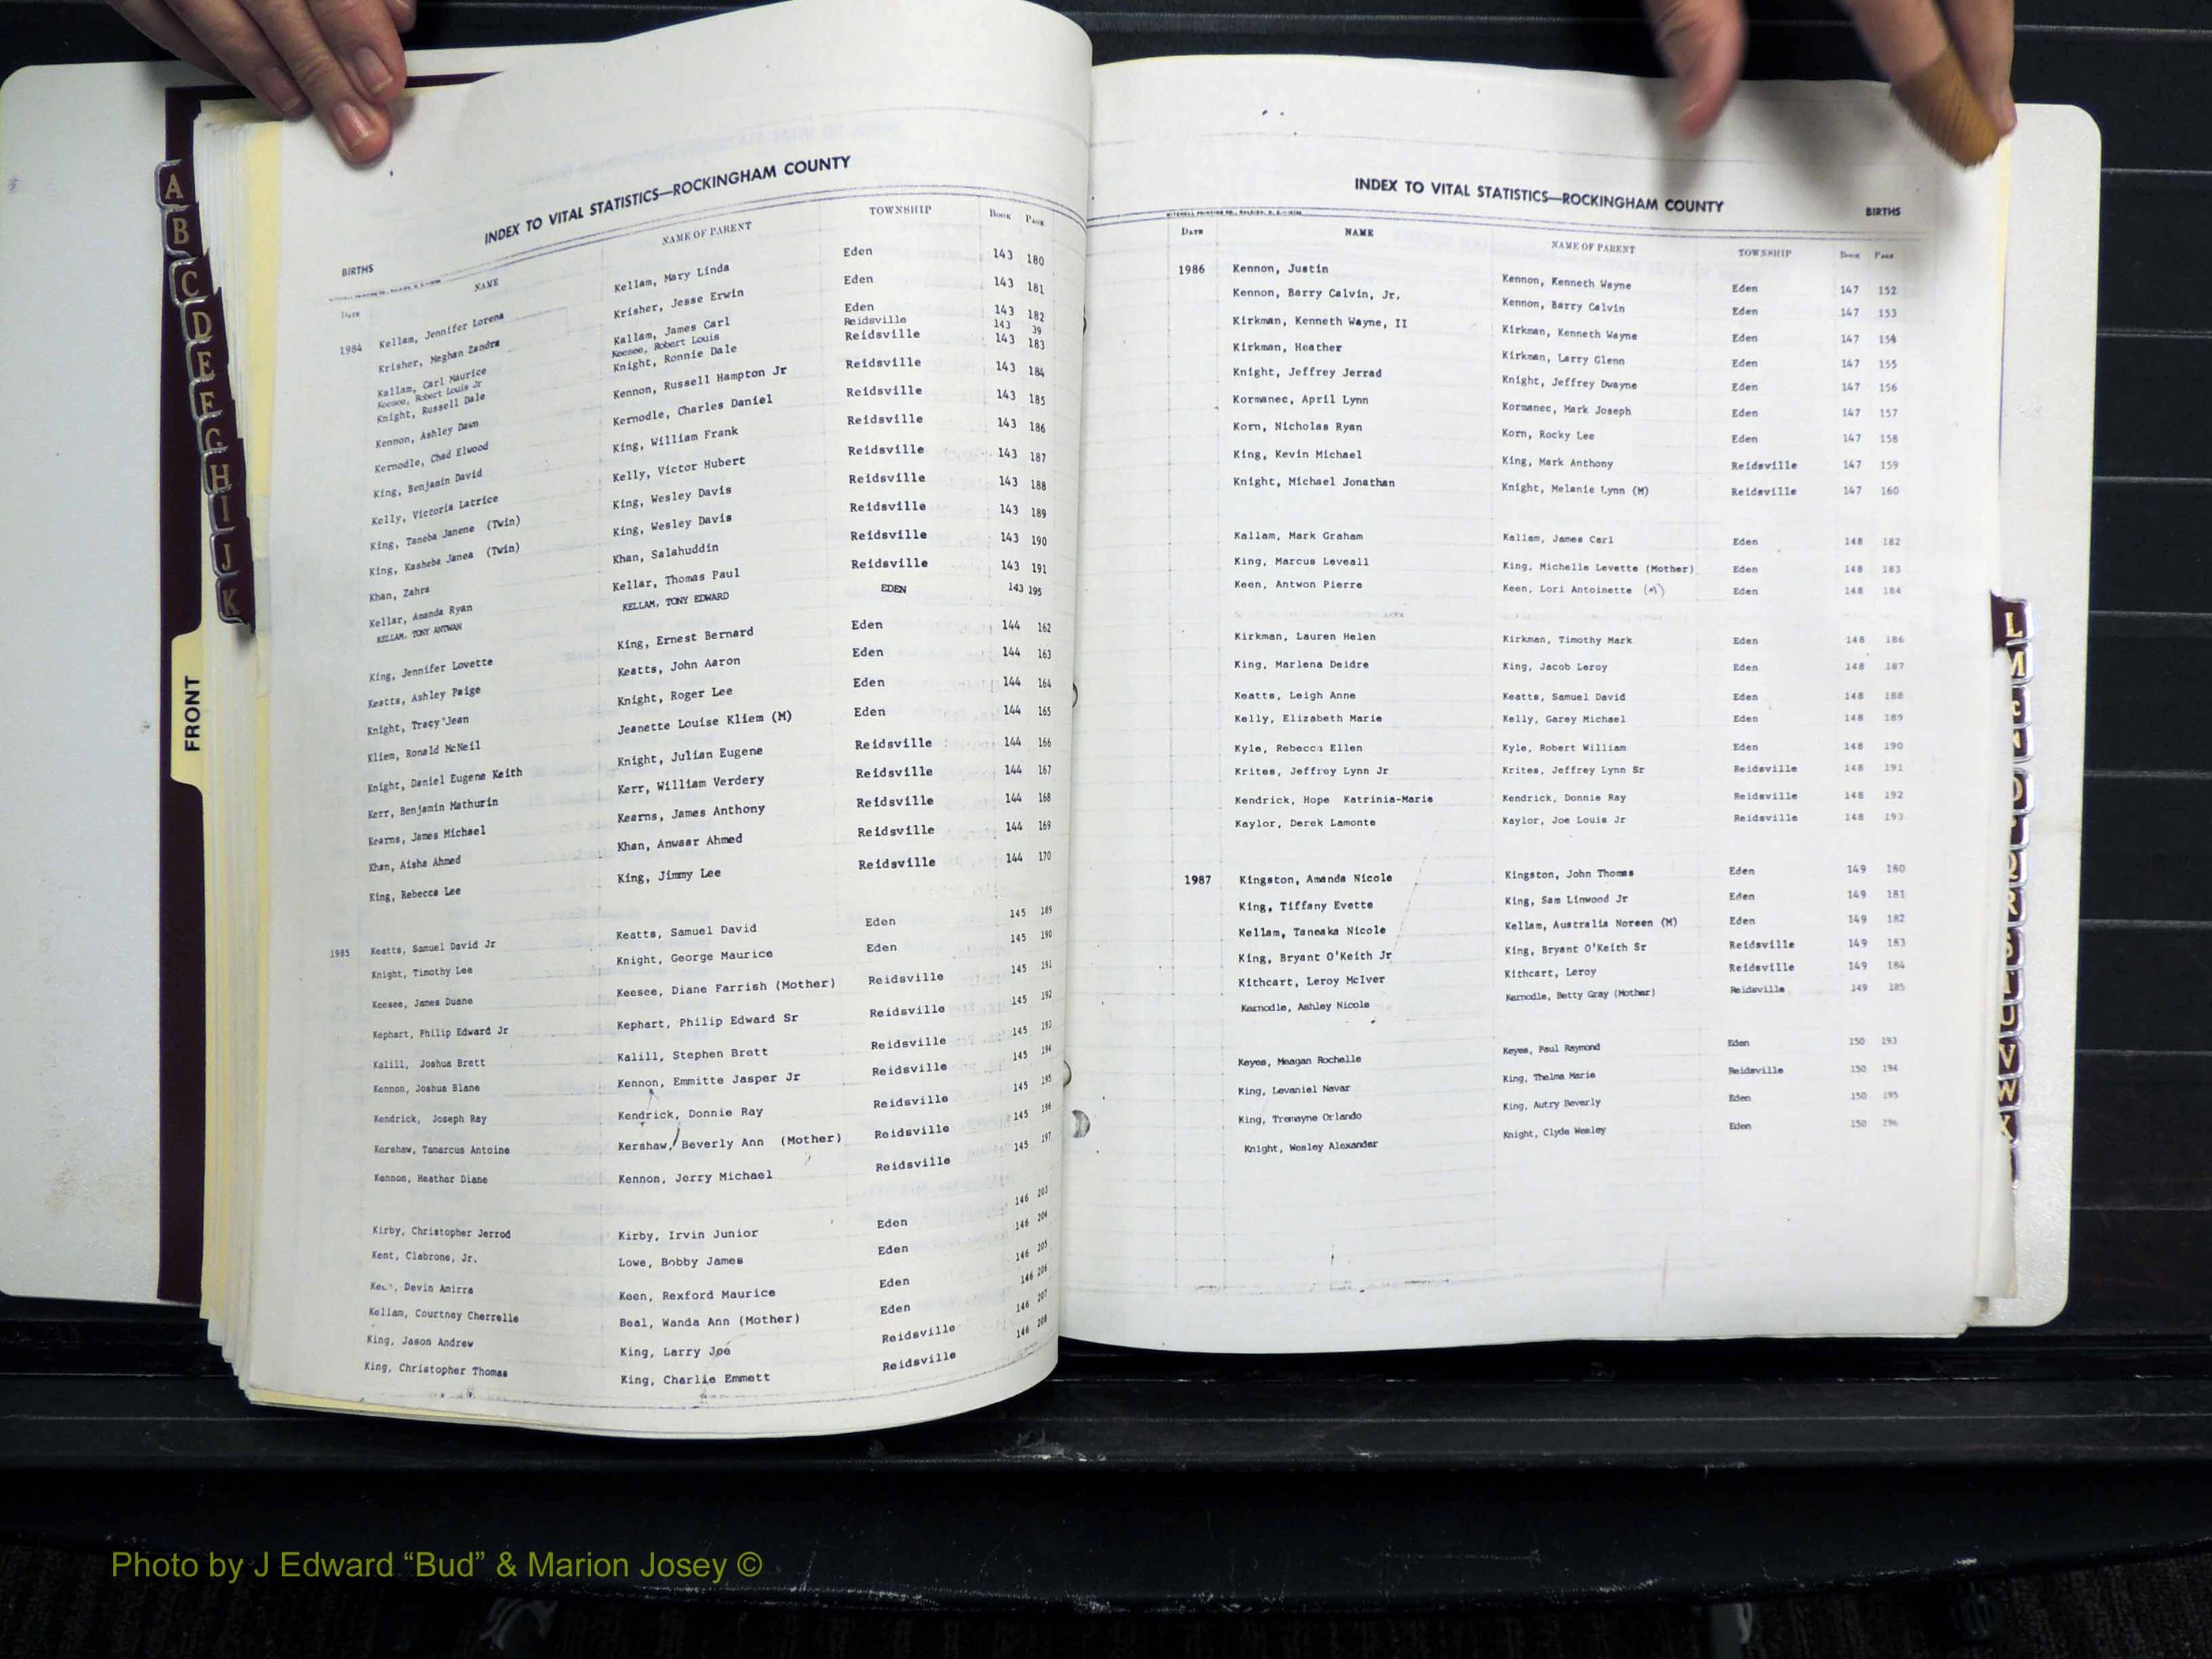 A
B
C
D
E
F
G
H
I
J
K
FRONT
INDEX TO VITAL STATISTICS—ROCKINGHAM COUNTY
BIRTHS
Date NAME NAME OF PARENT TOWNSHIP Book Page
1984 Kellam, Jennifer Lorena Kellam, Mary Linda Eden 143 180
Krisher, Meghan Zandra Krisher, Jesse Erwin Eden 143 181
Kallam, Carl Maurice Kallam, James Carl Eden 143 182
Keesee, Robert Louis Jr Keesee, Robert Louis Reidsville 143 39
Knight, Russell Dale Knight, Ronnie Dale Reidsville 143 183
Kennon, Ashley Dawn Kennon, Russell Hampton Jr Reidsville 143 184
Kernodle, Chad Elwood Kernodle, Charles Daniel Reidsville 143 185
King, Benjamin David King, William Frank Reidsville 143 186
Kelly, Victoria Latrice Kelly, Victor Hubert Reidsville 143 187
King, Taneba Janene (Twin) King, Wesley Davis Reidsville 143 188
King, Kasheba Janea (Twin) King, Wesley Davis Reidsville 143 189
Khan, Zahra Khan, Salahuddin Reidsville 143 190
Kellar, Amanda Ryan Kellar, Thomas Paul Reidsville 143 191
KELLAM, TONY ANTWAN KELLAM, TONY EDWARD EDEN 143 195
King, Jennifer Lovette King, Ernest Bernard Eden 144 162
Keatts, Ashley Paige Keatts, John Aaron Eden 144 163
Knight, Tracy Jean Knight, Roger Lee Eden 144 164
Kliem, Ronald McNeil Jeanette Louise Kliem (M) Eden 144 165
Knight, Daniel Eugene Keith Knight, Julian Eugene Reidsville 144 166
Kerr, Benjamin Mathurin Kerr, William Verdery Reidsville 144 167
Kearns, James Michael Kearns, James Anthony Reidsville 144 168
Khan, Aisha Ahmed Khan, Anwaar Ahmed Reidsville 144 169
King, Rebecca Lee King, Jimmy Lee Reidsville 144 170
1985 Keatts, Samuel David Jr Keatts, Samuel David Eden 145 189
Knight, Timothy Lee Knight, George Maurice Eden 145 190
Keesee, James Duane Keesee, Diane Farrish (Mother) Reidsville 145 191
Kephart, Philip Edward Jr Kephart, Philip Edward Sr Reidsville 145 192
Kalill, Joshua Brett Kalill, Stephen Brett Reidsville 145 193
Kennon, Joshua Blane Kennon, Emmitte Jasper Jr Reidsville 145 194
Kendrick, Joseph Ray Kendrick, Donnie Ray Reidsville 145 195
Kershaw, Tamarcus Antoine Kershaw, Beverly Ann (Mother) Reidsville 145 196
Kennon, Heather Diane Kennon, Jerry Michael Reidsville 145 197
Kirby, Christopher Jerrod Kirby, Irvin Junior Eden 146 203
Kent, Clabrone, Jr. Lowe, Bobby James Eden 146 204
Devin Amirra Keen, Rexford Maurice Eden 146 205
Kellam, Courtney Cherrelle Beal, Wanda Ann (Mother) Eden 146 206
King, Jason Andrew King, Larry Joe Reidsville 146 207
King, Christopher Thomas King, Charlie Emmett Reidsville 146 208
INDEX TO VITAL STATISTICS—ROCKINGHAM COUNTY
BIRTHS
Date NAME NAME OF PARENT TOWNSHIP Book Page
1986 Kennon, Justin Kennon, Kenneth Wayne Eden 147 152
Kennon, Barry Calvin, Jr. Kennon, Barry Calvin Eden 147 153
Kirkman, Kenneth Wayne, II Kirkman, Kenneth Wayne Eden 147 154
Kirkman, Heather Kirkman, Larry Glenn Eden 147 155
Knight, Jeffrey Jerrad Knight, Jeffrey Dwayne Eden 147 156
Kormanec, April Lynn Kormanec, Mark Joseph Eden 147 157
Korn, Nicholas Ryan Korn, Rocky Lee Eden 147 158
King, Kevin Michael King, Mark Anthony Reidsville 147 159
Knight, Michael Jonathan Knight, Melanie Lynn (M) Reidsville 147 160
Kallam, Mark Graham Kallam, James Carl Eden 148 182
King, Marcus Leveall King, Michelle Levette (Mother) Eden 148 183
Keen, Antwon Pierre Keen, Lori Antoinette (M) Eden 148 184
Kirkman, Lauren Helen Kirkman, Timothy Mark Eden 148 186
King, Marlena Deidre King, Jacob Leroy Eden 148 187
Keatts, Leigh Anne Keatts, Samuel David Eden 148 188
Kelly, Elizabeth Marie Kelly, Garey Michael Eden 148 189
Kyle, Rebecca Ellen Kyle, Robert William Eden 148 190
Krites, Jeffrey Lynn Jr Krites, Jeffrey Lynn Sr Reidsville 148 191
Kendrick, Hope Katrinia-Marie Kendrick, Donnie Ray Reidsville 148 192
Kaylor, Derek Lamonte Kaylor, Joe Louis Jr Reidsville 148 193
1987 Kingston, Amanda Nicole Kingston, John Thomas Eden 149 180
King, Tiffany Evette King, Sam Linwood Jr Eden 149 181
Kellam, Taneaka Nicole Kellam, Australia Noreen (M) Eden 149 182
King, Bryant O'Keith Jr King, Bryant O'Keith Sr Reidsville 149 183
Kithcart, Leroy McIver Kithcart, Leroy Reidsville 149 184
Kernodle, Ashley Nicole Kernodle, Betty Gray (Mother) Reidsville 149 185
Keyes, Meagan Rochelle Keyes, Paul Raymond Eden 150 193
King, Levaniel Navar King, Thelma Marie Reidsville 150 194
King, Tremayne Orlando King, Autry Beverly Eden 150 195
Knight, Wesley Alexander Knight, Clyde Wesley Eden 150 196
L
M
V
W
Photo by J Edward “Bud” & Marion Josey ©